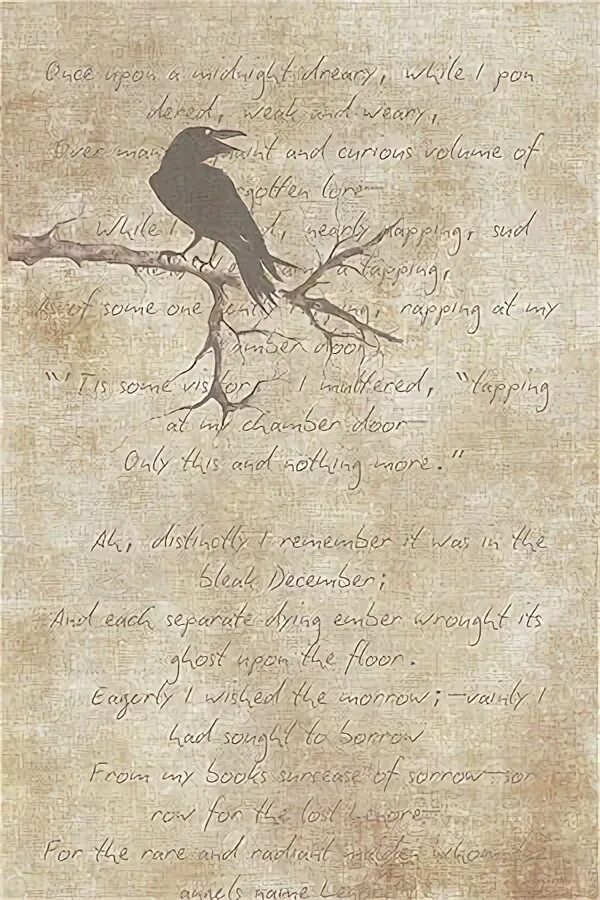 Once upon a midnight dreary, while I pon
dered, weak and weary,
Over many quaint and curious volume of
gotten lore—
While I nearly napping, sud
a tapping,
As of some one rapping, rapping at my
chamber door.
"'Tis some visitor," I muttered, "tapping
at my chamber door
Only this and nothing more."
Ah, distinctly I remember it was in the
bleak December;
And each separate dying ember wrought its
ghost upon the floor.
Eagerly I wished the morrow;—vainly I
had sought to borrow
From my books surcease of sorrow—sor
row for the lost Lenore
For the rare and radiant maiden whom
angels name Lenore